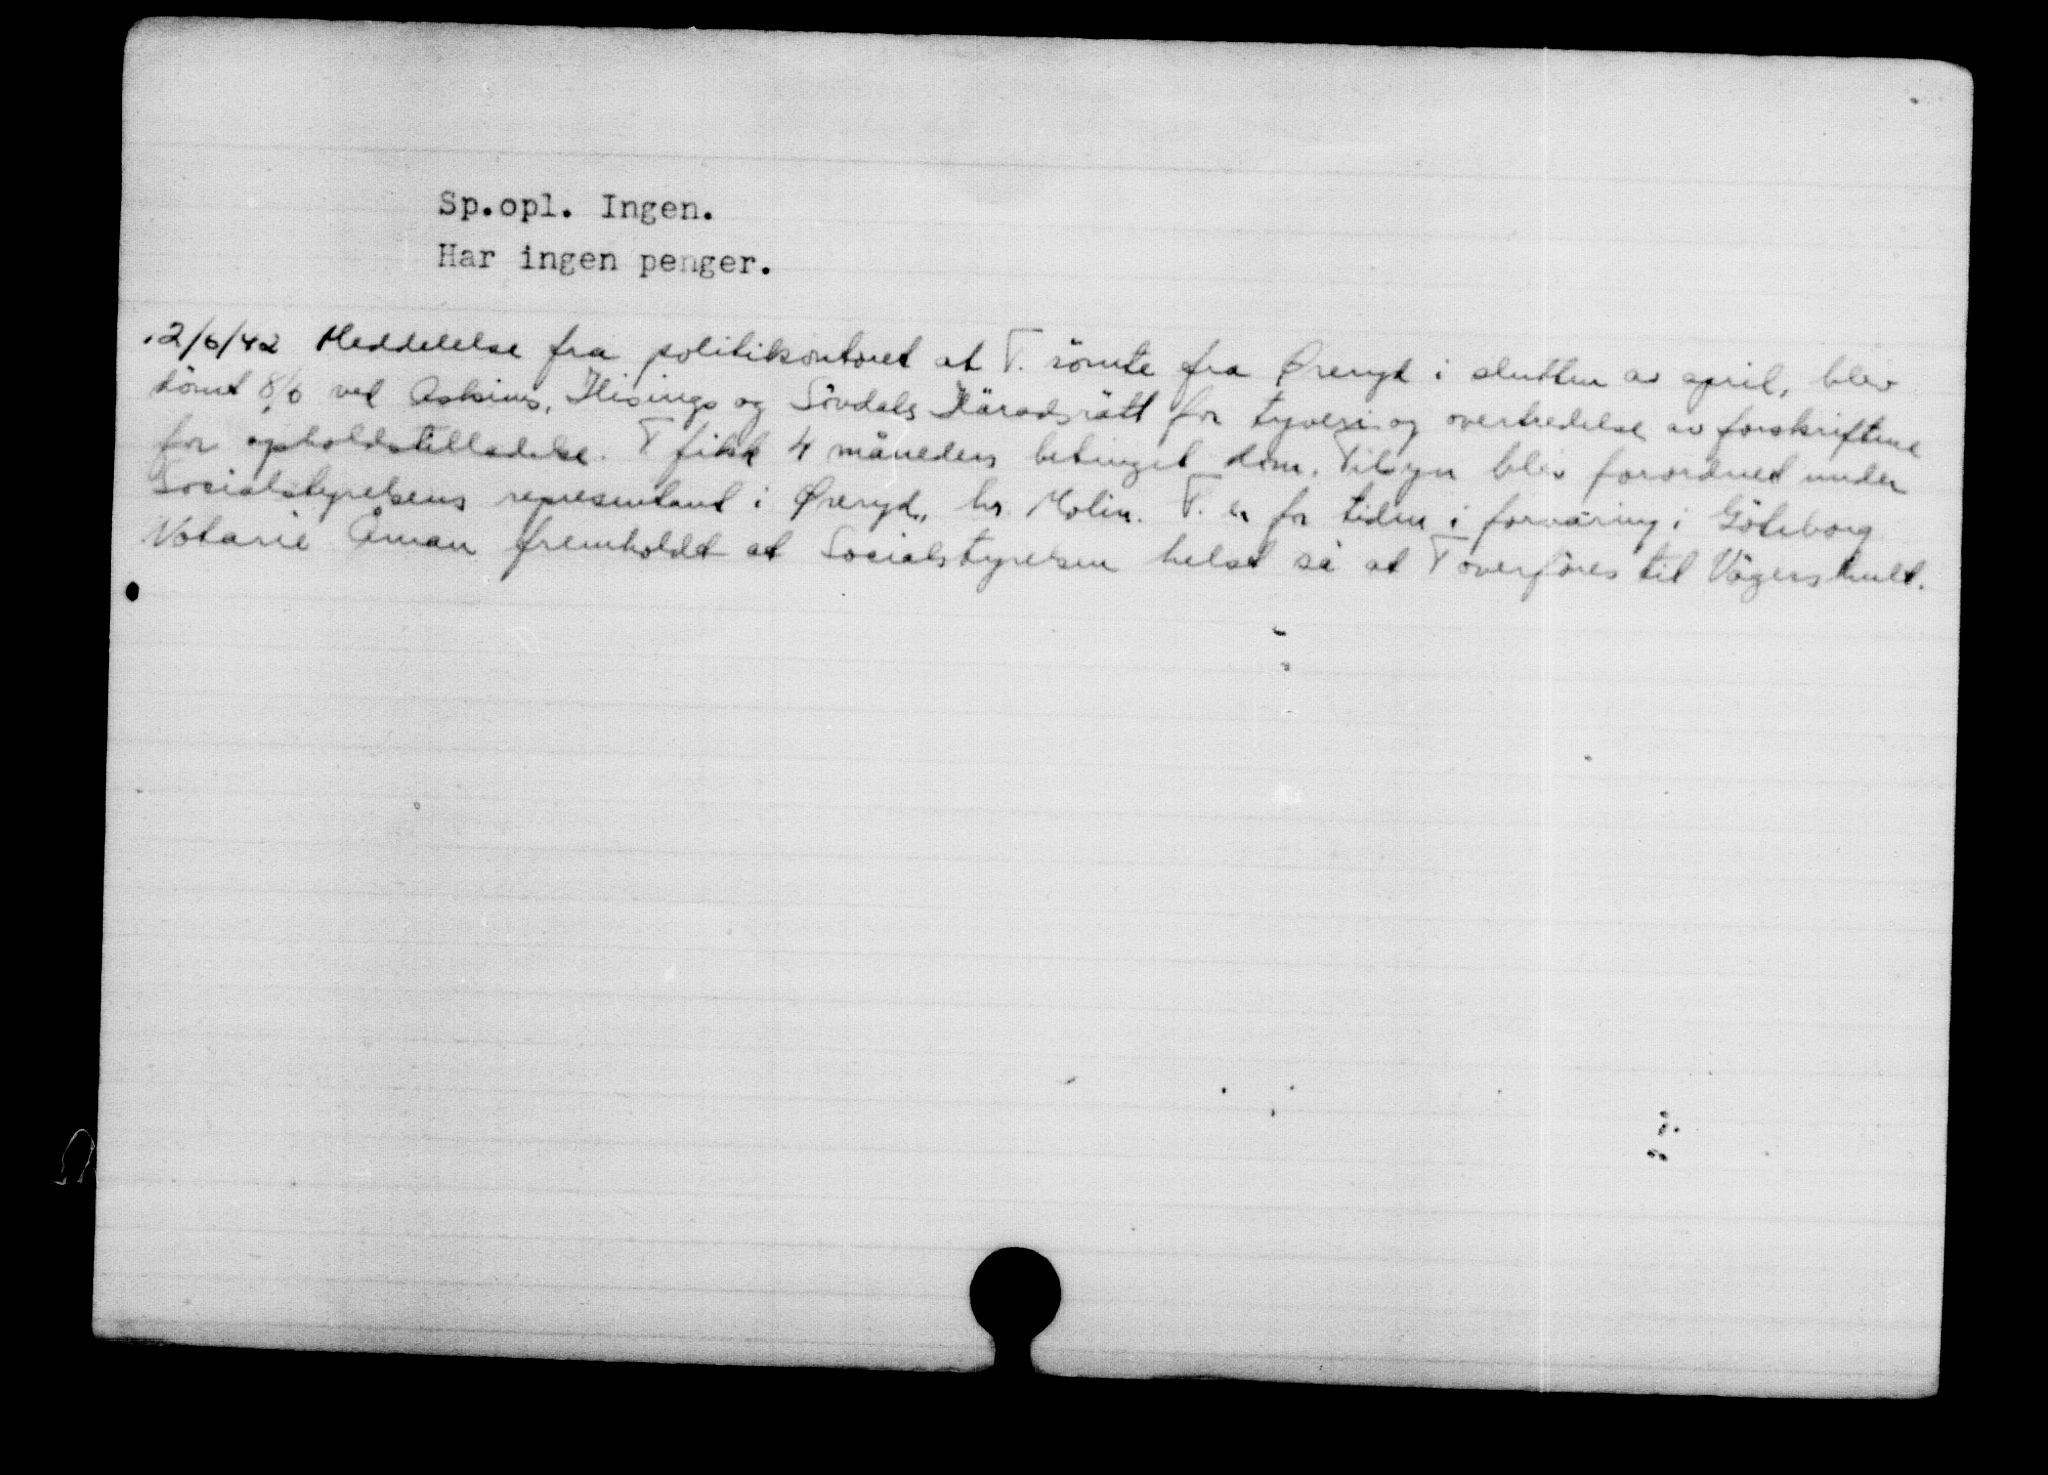 Sp.opl. Ingen.
Har ingen penger.
12/6/42 Meddelelse fra politikontoret at T. römte fra Öreryd i slutten av april, blev
dömt 8/6 ved Askims, Hisings og Sävdals Häradsrätt for tyveri og overtredelse av forskriftene
for opholdstilladelse. T fikk 4 måneders betinget dom. Tilsyn blev forordnet under
Socialstyrelsens representant i Øreryd, hr. Molin. T. er for tiden i forvaring i Göteborg
Notarie Åman fremholdt at Socialstyrelsen helst så at T overföres til Vägershult.